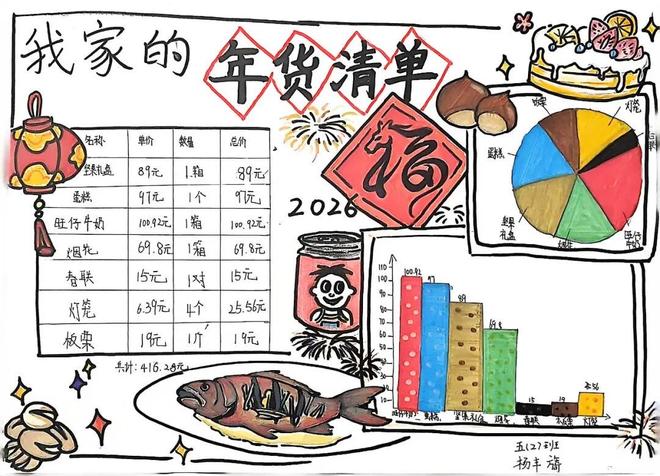 我家的
年货清单
福
2026
名称 单价 数量 总价
坚果礼盒 89元 1箱 89元
蛋糕 97元 1个 97元
旺仔牛奶 100.92元 1箱 100.92元
烟花 69.8元 1箱 69.8元
春联 15元 1对 15元
灯笼 6.39元 4个 25.56元
板栗 19元 1个 19元
共计:416.28元
灯笼
蛋糕
坚果
礼盒
旺仔
牛奶
110
100
90
80
70
60
50
40
30
20
10
100.92
97
89
69.8
15
19
旺仔牛奶 蛋糕 坚果礼盒 烟花 春联 板栗 灯笼
五(2)班
杨丰旖